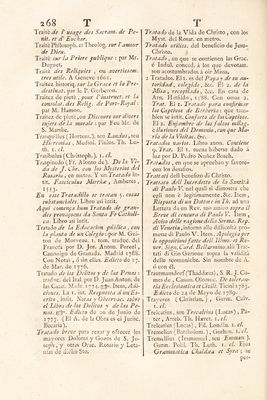 268 T T
Traité de l'usage des Sacram. de Penit. et d'Euchar.
Traité Philosoph. et Theolog. sur l'amour de Dieu.
Traité sur la Priere publique : par Mr. Duguet.
Traité des Religions, ou
tres utile. A Geneve 1631.
Traité historique sur la Grace et la Predestinat. par le P. Gerberon.
Traitez de pieté, pour l'instruct. et la consolat. des Relig. de Port-Royal: par M. Hamon.
Traitez de pieté, ou Discours sur divers sujets de la morale : par Feu Mr. de S. Marthe.
Tranquillus (Hortens.), seu Landus, seu Hieremias, Medioi. Philos. Th. Luth. 1. cl.
Trasibulus (Christoph.) 1. cl.
Trasiopedo (Fr. Alonso de). De la Vida de J. Chr. con los Mysterios del Rosario, en metro. Y un Tratado intit. Fasciculus Mirrhæ, Amberes 1553.
En este Tratadillo se tratan 5. cosas substanciales. Libro así intit.
Aquí comienza unos Tratado de grandes preguntas de Sousa Fr Catholica. Libro así intit.
Tratado de la Educacion pública, con la planta de un Colegio: por M. Guiton de Morveau. 1. tom. traduc. del Francés por D. Jos. Anton. Porcel; Canonigo de Granada. Madrid 1768. Con Notas, é sin ellas. Edicto de 17. de Mar. de 1776.
Tratado de los Delitos y de las Penas: traduc. del Ital. por D. Juan Anton. de las Casas. Madr. 1774. 8.º: Item, Adiciones. La 1. int. Respuesta á un Escrito, intit. Notas y Observac. sobre el Libro de los Delitos y de las Penas, &c. Edicto de 20 de Junio de 1777. (El A. de la Obra es el Jurisc. Becaria).
Tratado breve para rezar y ofrecer los mayores Dolores y Gozos de S. Joseph, y otras Orac. Rosario y Letanías de dicho Sto.
Tratado de la Vida de Christo, con los Myst. del Rosar. en metro.
Tratado utiliss. del beneficio de JesuChristo.
Tratado, en que se contienen las Gracias é Indul. conced. á los que devotamen. son acostumbrados á oir Misa.
2 Tratados. El 1. es del Papa y de su autoridad, colegido, &c. El 2. de la Misa, recopilado, &c. En casa de Ant. Hatfildo, 1588. Con otros 2. Trat. El 1. Tratado para confirmar los Captivos de Berberia: que tambien se intit. Confuta de los Captivos. El 2. Enjambre de los falsos milag. é ilusiones del Demonio, con que María de la Visitac. &c.
Tratados varios. Libro anon. Contiene 9. Trat. El 1. nunca hubiera dado á luz por D. Pedro Sanchez Bosch.
Tractado, en que se aprueban y favorecen los desafios.
Trattato dell benefizio di Christo.
Trattato dell' Interdetto de la Santità di Paulo V. nel quale si dimostra che egli non è legitimamente &c. Item: Risposta di un Dottor in Th. ad una Lettera da un Rev. suo amico sopra il Breve di censura di Paolo V. Item, Aviso delle ragioni della Seren. Rep. di Venetia, intorno alle difficoltà promosse di Paulo V. Item, Apologia per le oppositioni fatte dell' Illmo. et Rever. Sig. Card. Bellarmino alli Trattati di Gio Gersone sopra la validità delle scomuniche. Son 4. Tratados sin nombre de A. 6 con él.
Trautmansdorf (Thaddeus), S. R. J. Comes de Canon. Olomuz. De tolerantia Ecclesiastica et civili. Ticini 1783. Edicto de 24 de Mayo de 1789.
Trayerus (Christian.), Germ. Calv. 1. cl.
Trelcatius, seu Trelcatius (Lucas), Pater, Artois, Th. Haret. Amst. 1. cl.
Trelcatius (Lucas), Fil. Londin. 1. cl.
Tremelius (Bartholom.), Gothan. 1. cl.
Tremellius (Immanuel, seu Emman.) Ferrar. Poli. Th. Luth. 1. cl. Ejus Grammatica Chaldæa et Syra; se per-